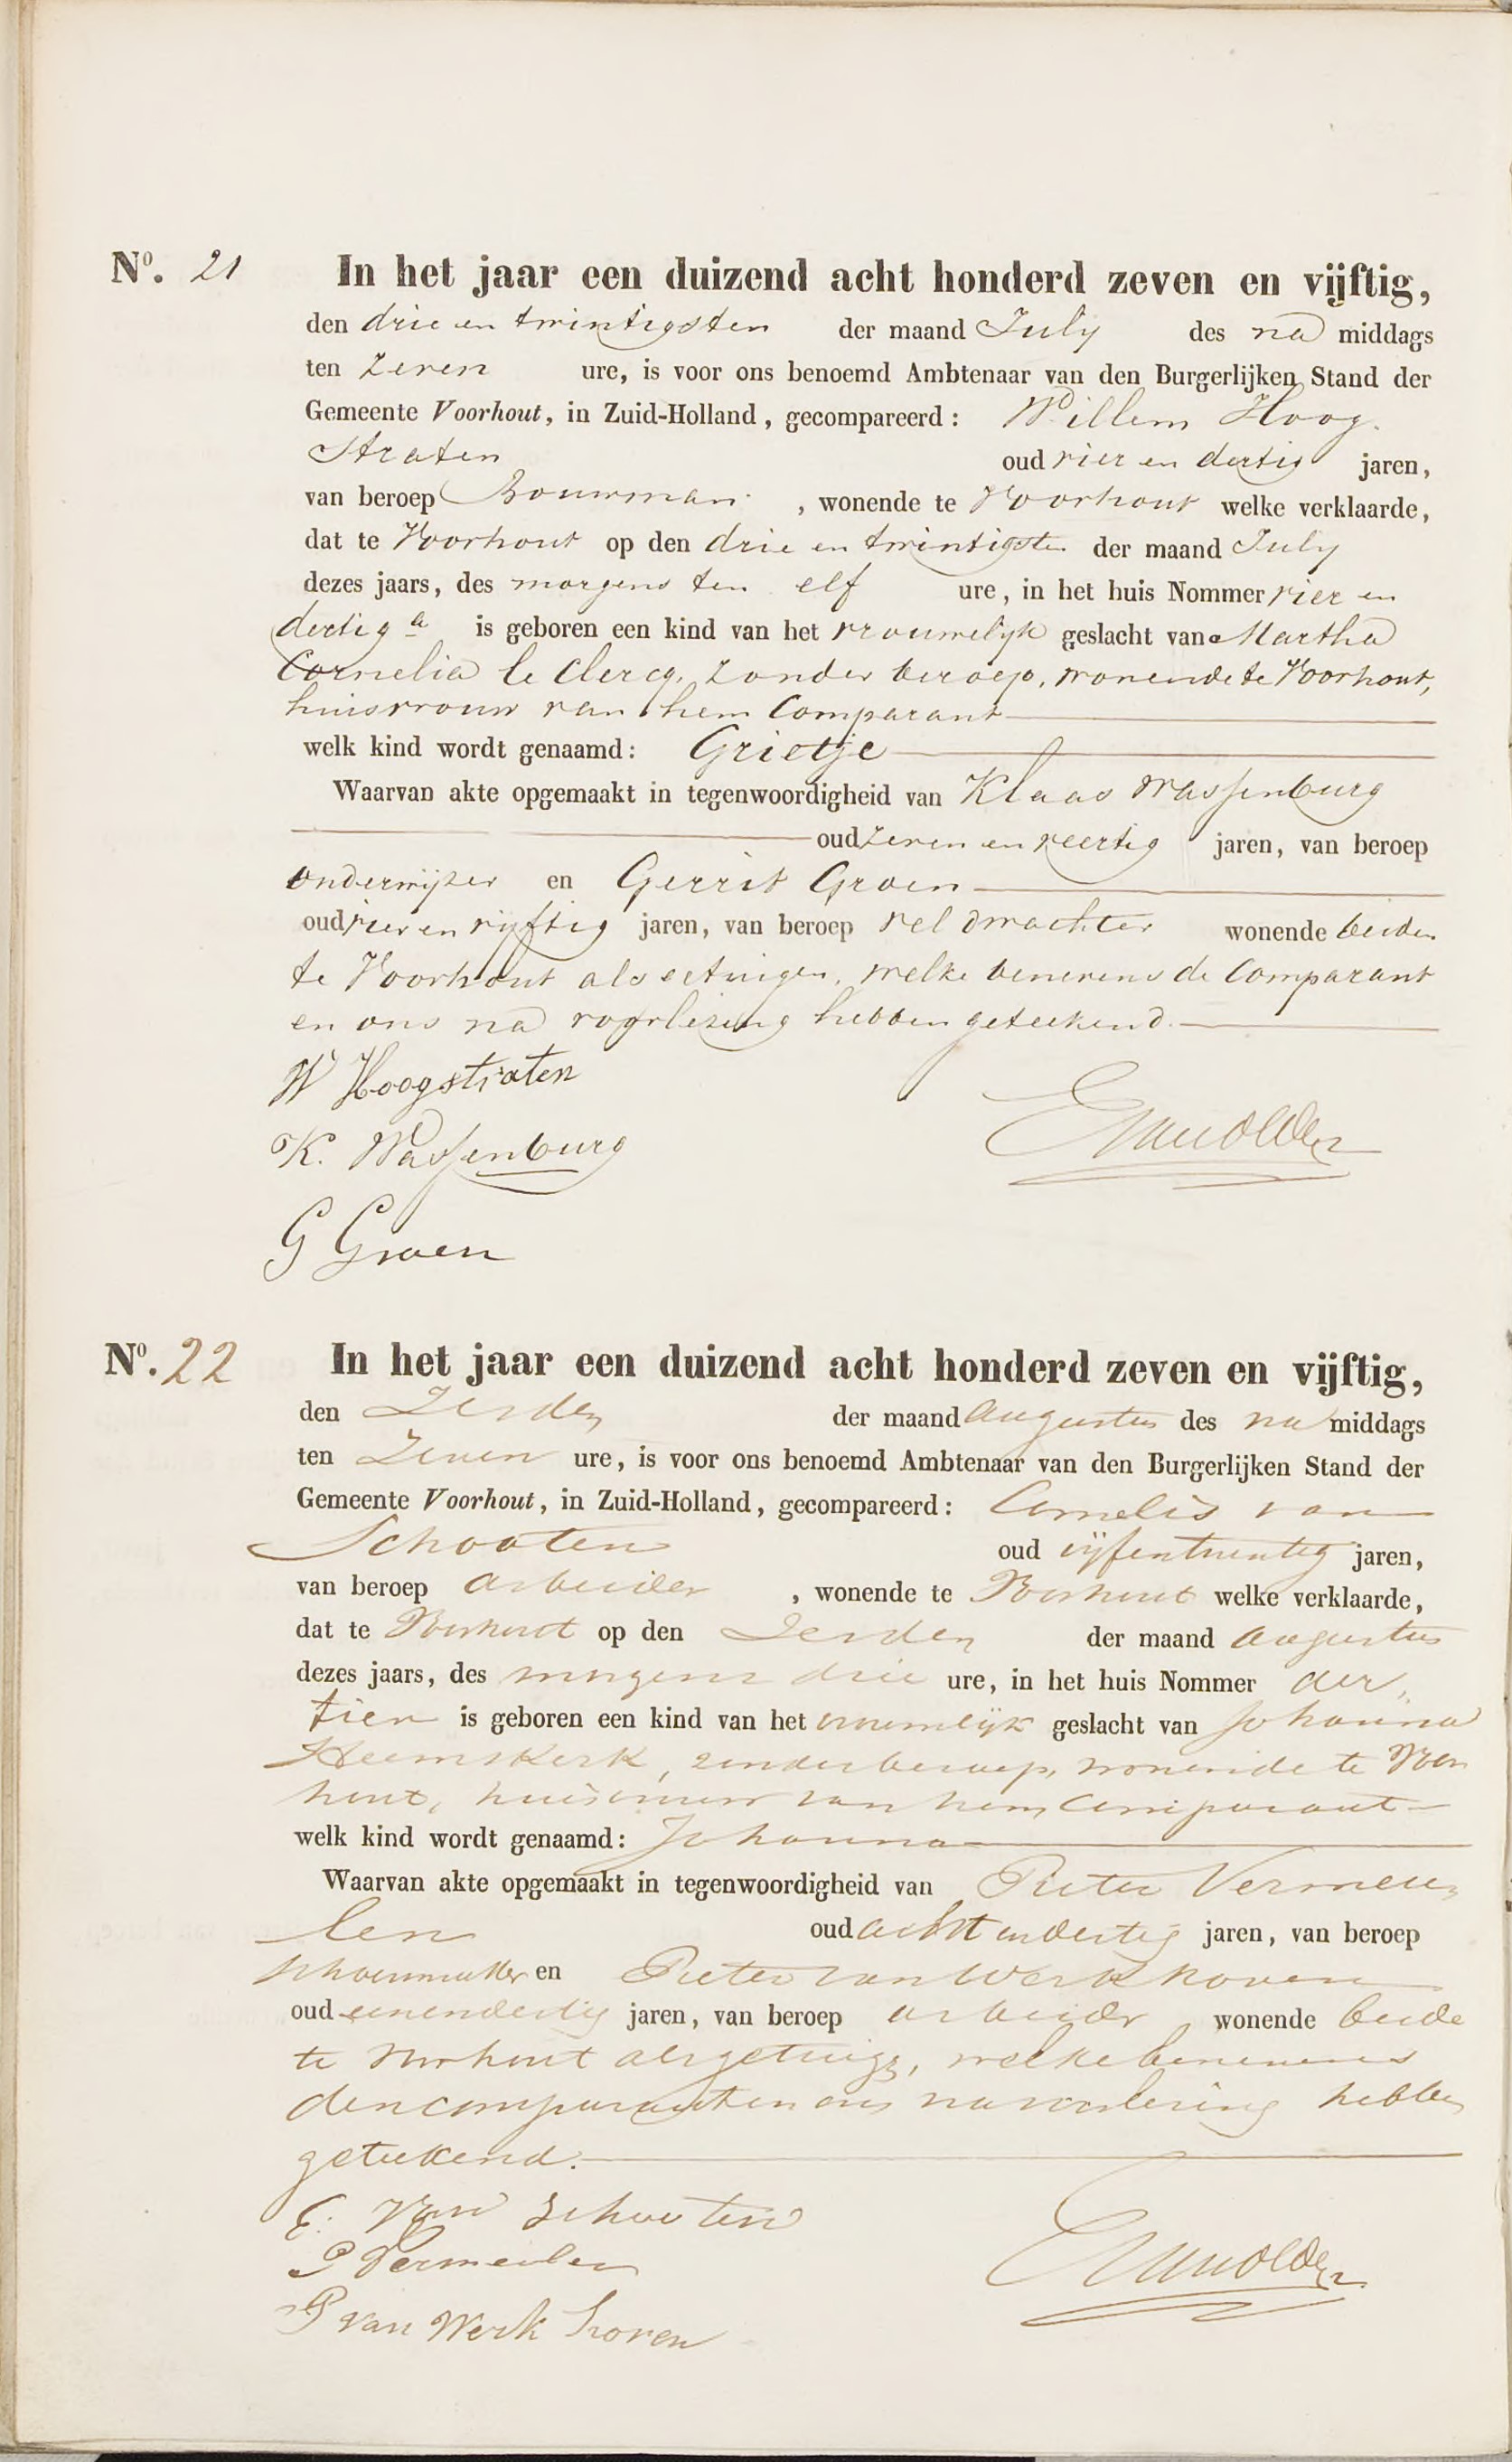 Nº. 21 In het jaar een duizend acht honderd zeven en vijftig,
den drie en twintigsten der maand July des na middags
ten zeven ure, is voor ons benoemd Ambtenaar van den Burgerlijken Stand der
Gemeente Voorhout, in Zuid-Holland, gecompareerd: Willem Hoog-
straten oud vier en dertig jaren,
van beroep Bouwman, wonende te Voorhout welke verklaarde,
dat te Voorhout op den drie en twintigsten der maand July
dezes jaars, des morgens ten elf ure, in het huis Nommer vier en
dertig a is geboren een kind van het vrouwelijk geslacht van Martha
Cornelia le Clercq, zonder beroep, wonende te Voorhout,
huisvrouw van hem Comparant
welk kind wordt genaamd: Grietje
Waarvan akte opgemaakt in tegenwoordigheid van Klaas Wassenburg
oud zeven en veertig jaren, van beroep
onderwijzer en Gerrit Groen
oud vier en vijftig jaren, van beroep veldwachter wonende beiden
te Voorhout als getuigen, welke benevens de Comparant
en ons na voorlezing hebben geteekend.
W Hoogstraten
K. Wassenburg
G Groen
Nº. 22 In het jaar een duizend acht honderd zeven en vijftig,
den Zesden der maand Augustus des na middags
ten Zeven ure, is voor ons benoemd Ambtenaar van den Burgerlijken Stand der
Gemeente Voorhout, in Zuid-Holland, gecompareerd: Cornelis van
Schooten oud vijfentwintig jaren,
van beroep arbeider, wonende te Voorhout welke verklaarde,
dat te Voorhout op den Zesden der maand Augustus
dezes jaars, des morgens drie ure, in het huis Nommer der,
tien is geboren een kind van het vrouwelijk geslacht van Johanna
Heemskerk, zonder beroep, wonende te Voor
hout, huisvrouw van hem Comparant
welk kind wordt genaamd: Johanna
Waarvan akte opgemaakt in tegenwoordigheid van Pieter Vermeu,
len oud acht en dertig jaren, van beroep
schoenmaker en Pieter van Werkhoven
oud eenendertig jaren, van beroep arbeider wonende beide
te Voorhout als getuigen, welke benevens
den comparant en ons na voorlezing hebben
getekend.
C. van Schooten
P Vermeulen
P van Werkhoven